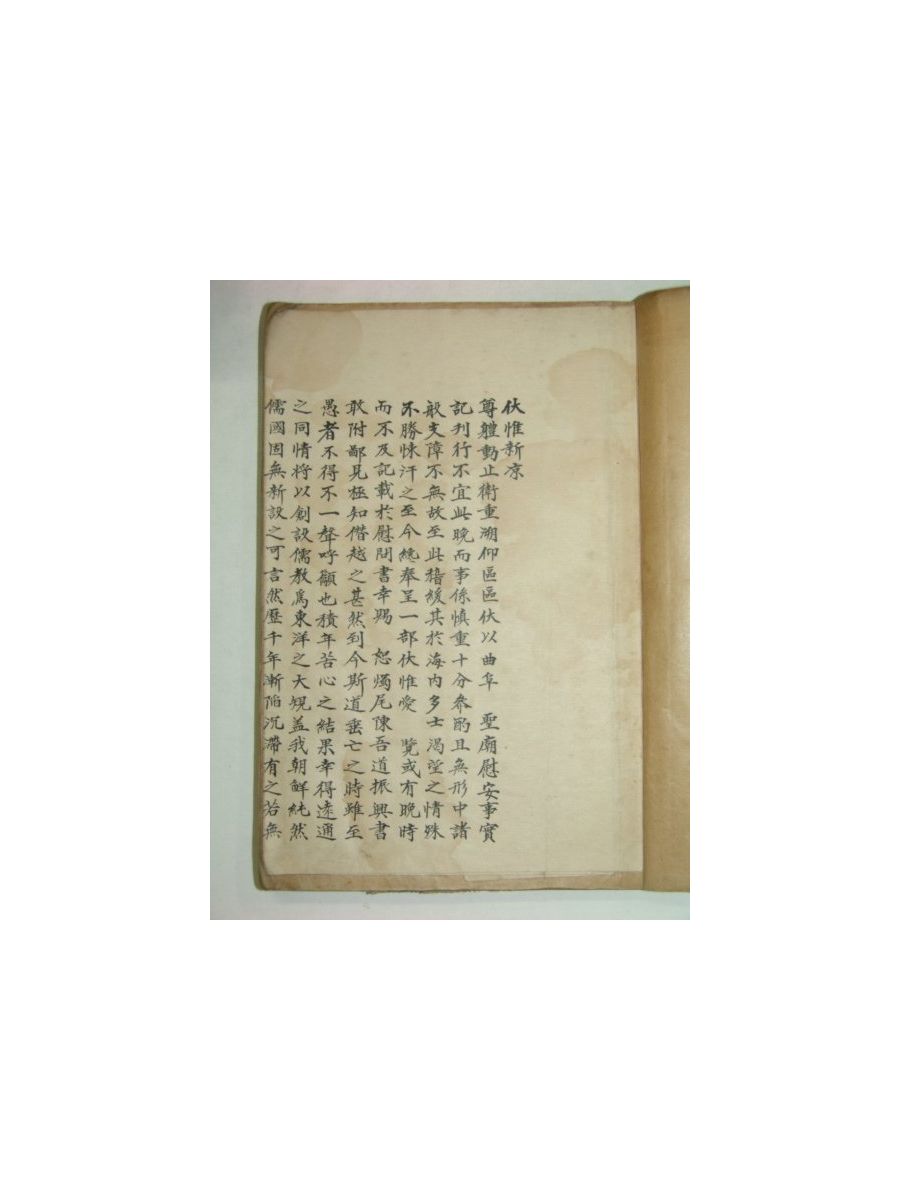 伏惟新凉
尊體動止衛重溯仰區區伏以曲阜　聖廟慰安事實
記刊行不宜此晚而事係愼重十分參酌且無形中諸
般支障不無故至此稽緩其於海內多士渴望之情殊
不勝悚汗之至今纔奉呈一部伏惟愛　覽或有晩時
而不及記載於慰問書幸賜　恕燭尾陳吾道振興書
敢附鄙見極知僭越之甚然到今斯道垂亡之時雖至
愚者不得不一聲呼顲也積年苦心之結果幸得遠通
之同情將以創設儒教爲東洋之大規盖我朝鮮純然
儒國固無新設之可言然歷千年漸陷沉滯有之若無